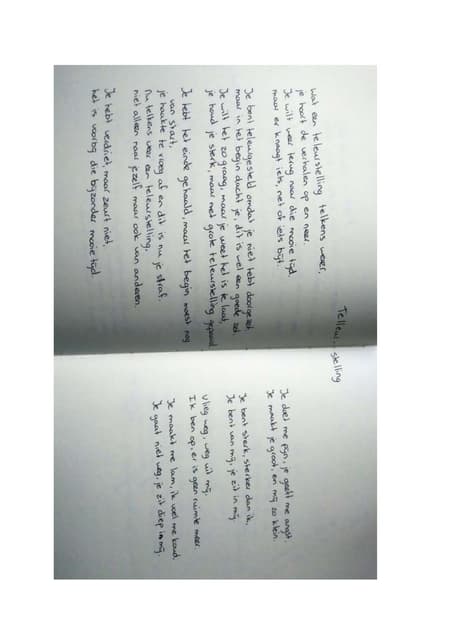 Teleur-stelling
Wat een teleurstelling telkens weer,
je hoort de verhalen op en neer.
Je wilt weer terug naar die mooie tijd
maar er knaagt iets, net of iets bijt.
Je bent teleurgesteld omdat je niet hebt doorgezet
maar in het begin dacht je, dit is wel een goede zet.
Je wilt het zo graag, maar je weet het is te laat,
je houd je sterk, maar met grote teleurstelling gepaard
Je hebt het einde gehaald, maar het begin moest nog
van start,
je haakte te vroeg af en dit is nu je straf.
Nu telkens weer een teleurstelling.
niet alleen naar jezelf maar ook van anderen.
Je hebt verdriet maar zeurt niet
het is voorbij die bijzonder mooie tijd.
Je doet me pijn, je geeft me angst.
Je maakt je groot, en mij zo klein.
Je bent sterk, sterker dan ik,
Je bent van mij, je zit in mij
Vlieg weg, weg uit mij,
Ik ben op, er is geen ruimte meer.
Je maakt me lam, ik voel me koud.
Je gaat niet weg, je zit diep in mij.